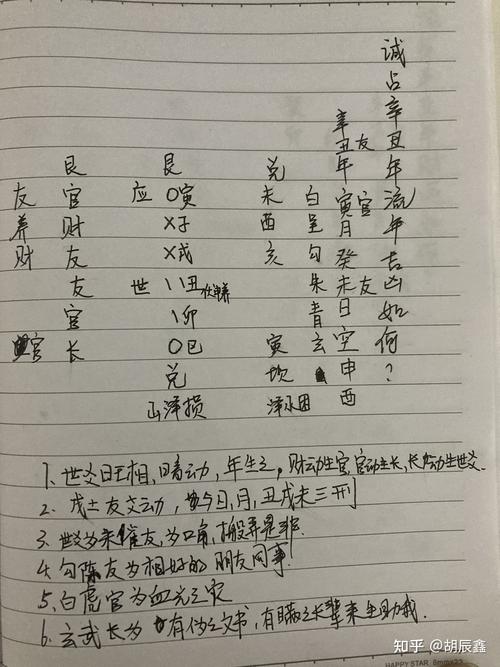 诚占辛丑年流年吉凶如何？
辛丑年 寅月 癸未日 空 申酉
友 官 友
艮 艮 兑
友 官 应 O寅 未 白
养 财 X子 酉
财 友 X戌 亥 勾
友 世 \\丑 朱
官 \卯 青
官 长 O巳 寅 玄
兑 坎
山泽损 泽水困
1、世爻日王相,暗动,年生之,财动生官,官动生长,长动生世爻.
2、戌土友爻动,与日,月,丑戌未三刑
3、世爻为朱雀友,为口角,搬弄是非.
4、勾陈友为相好的朋友同事.
5、白虎官为血光之灾
6、玄武长为有伪之文书,有瞒之长辈来生助我.
HAPPY STAR 8mmx23
知乎 @胡辰鑫